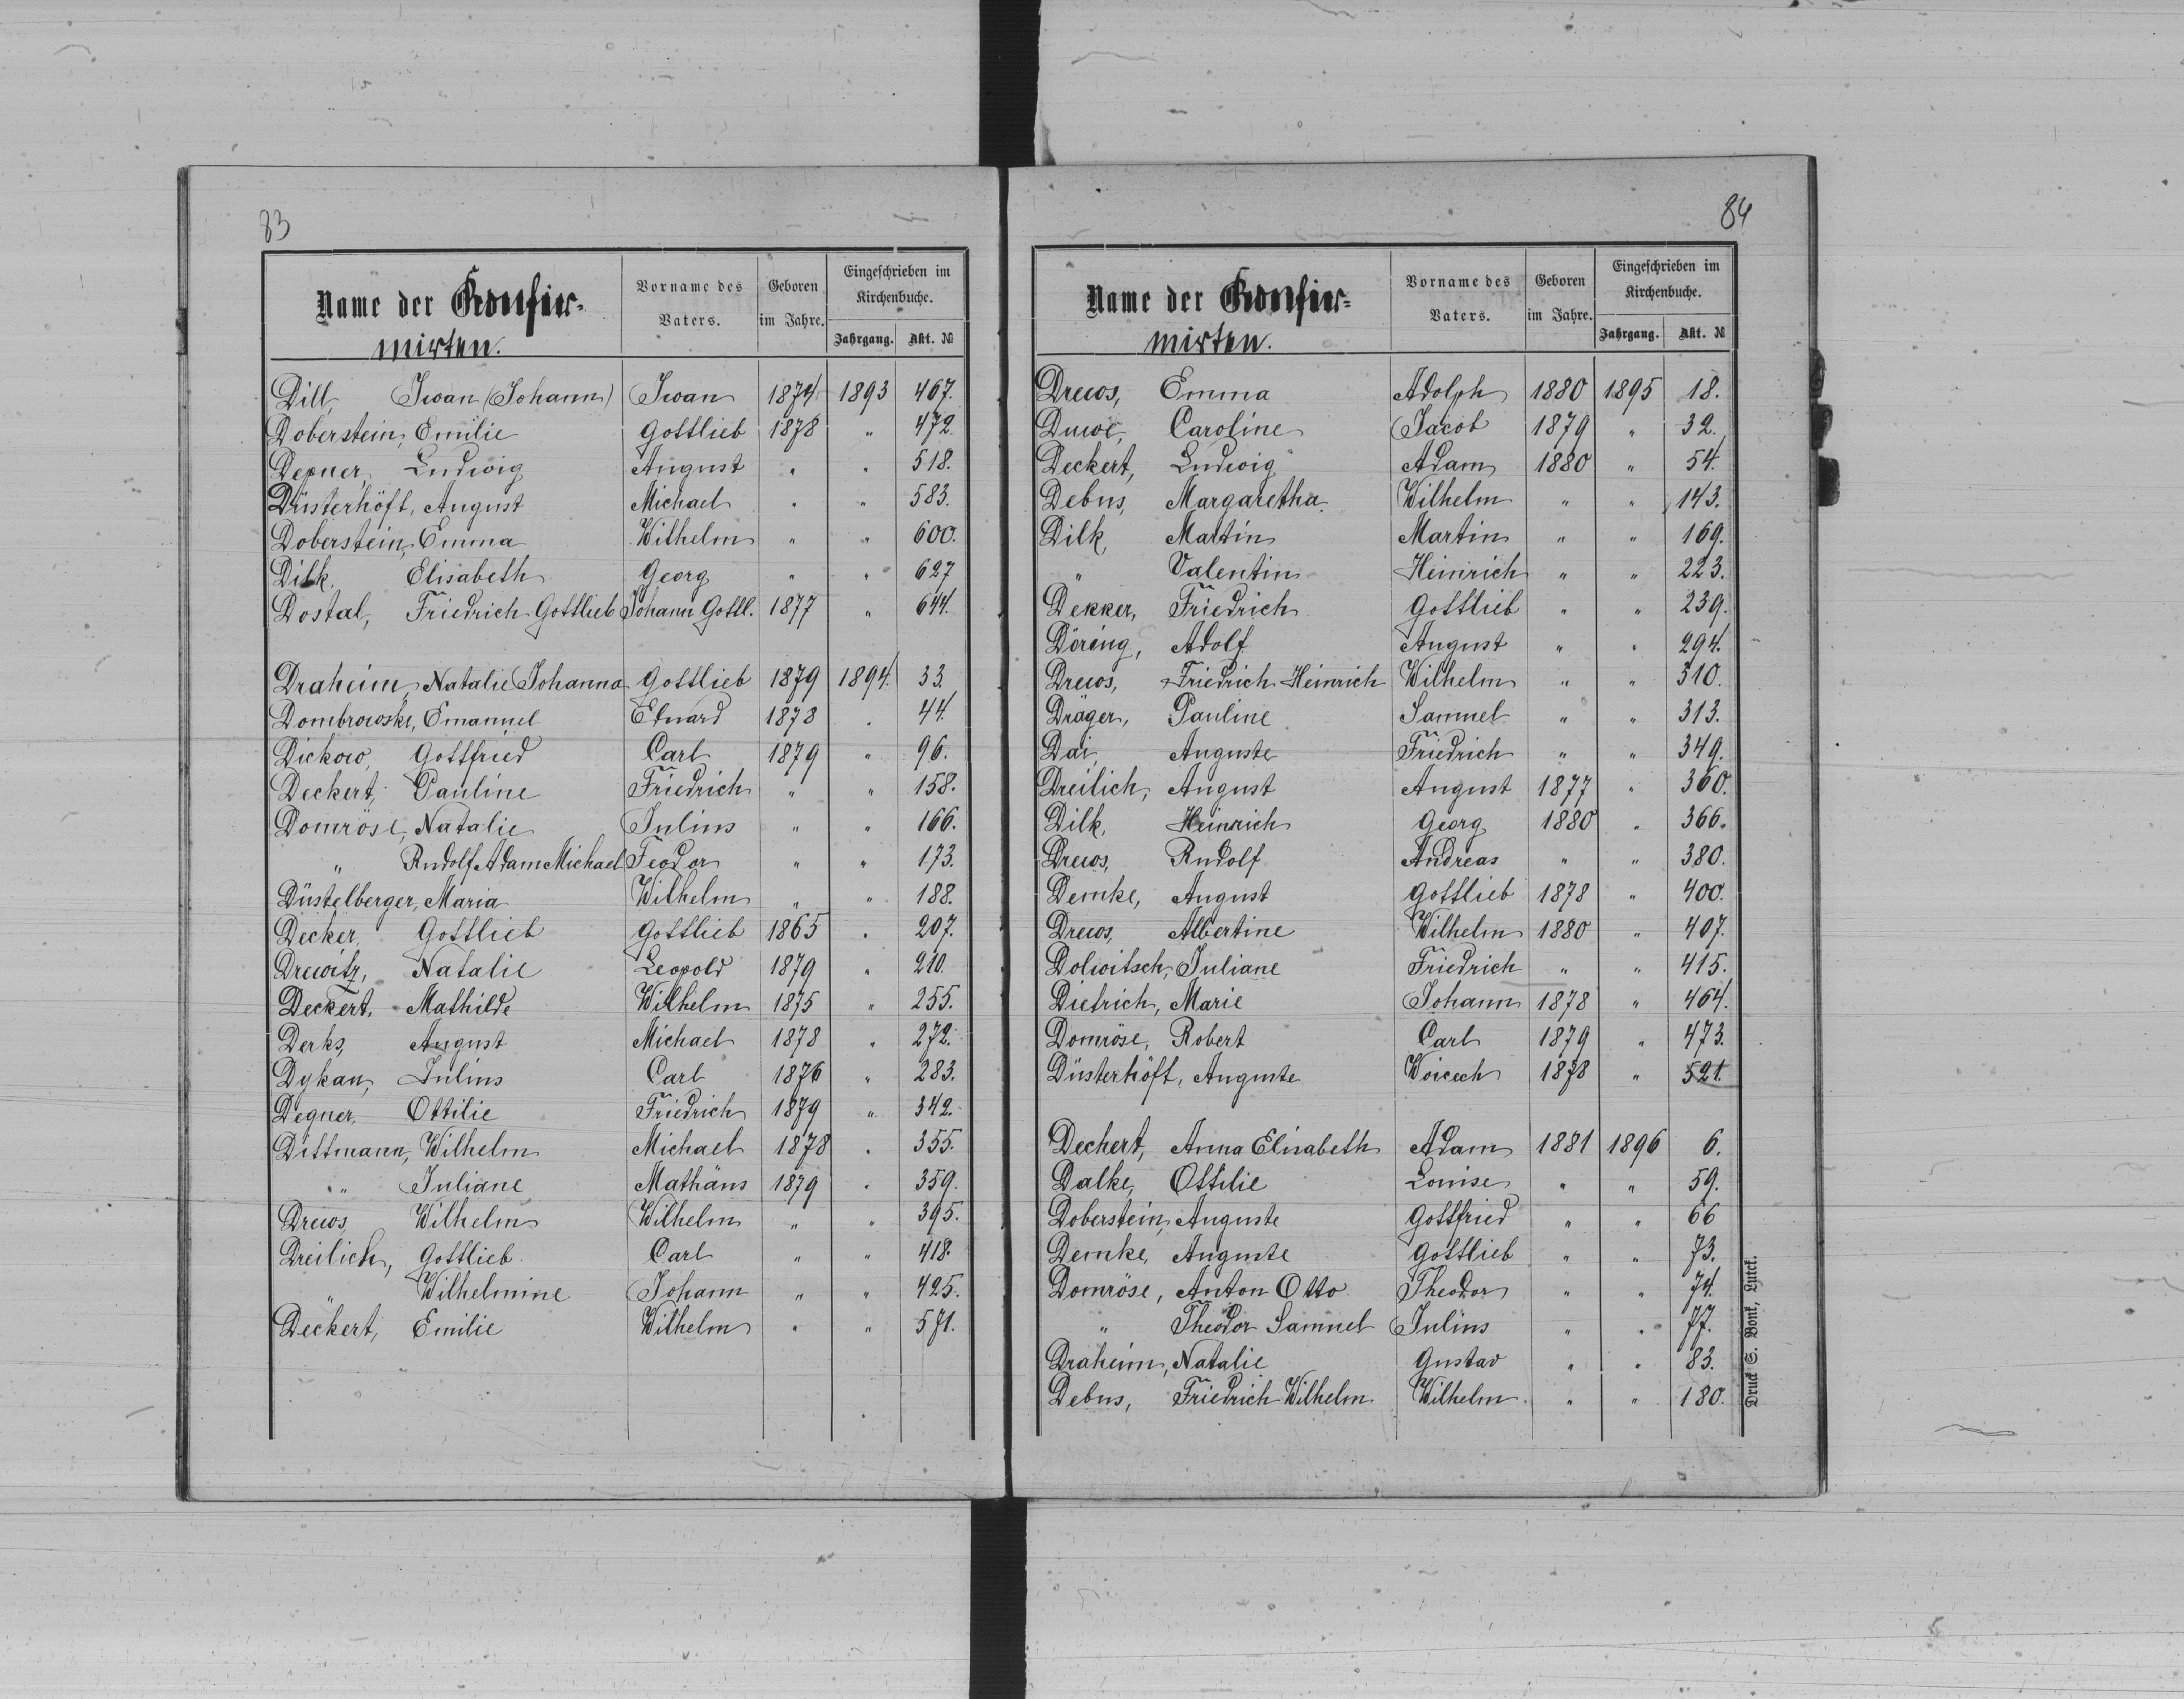 83
Name der Konfir-
mirten.
Vorname des Vaters.
Geboren im Jahre.
Eingeschrieben im Kirchenbuche.
Jahrgang. Akt. №
Dill, Iwan (Johann) Iwan 1874 1893 467.
Doberstein, Emilie Gottlieb 1878 " 472.
Depner, Ludwig August " " 518.
Düsterhöft, August Michael " " 583.
Doberstein, Emma Wilhelm " " 600.
Dilk, Elisabeth Georg " " 627
Dostal, Friedrich Gottlieb Johann Gottl. 1877 " 644.
Draheim, Natalie Johanna Gottlieb 1879 1894. 33.
Dombrowski, Emanuel Eduard 1878 " 44.
Dickow, Gottfried Carl 1879 " 96.
Deckert, Pauline Friedrich " " 158.
Domröse, Natalie Julius " " 166.
" Rudolf Adam Michael Teodor " " 173.
Düstelberger, Maria Wilhelm " " 188.
Decker, Gottlieb Gottlieb 1865 " 207.
Drewitz, Natalie Leopold 1879 " 210.
Deckert, Mathilde Wilhelm 1875 " 255.
Derks, August Michael 1878 " 272.
Dykau, Julius Carl 1876 " 283.
Degner, Ottilie Friedrich 1879 " 342.
Dittmann, Wilhelm Michael 1878 " 355.
" Juliane Mathäus 1879 " 359.
Drews, Wilhelm Wilhelm " " 395.
Dreilich, Gottlieb Carl " " 418.
" Wilhelmine Johann " " 425.
Deckert, Emilie Wilhelm " " 571.
84
Name der Konfir-
mirten.
Vorname des Vaters.
Geboren im Jahre.
Eingeschrieben im Kirchenbuche.
Jahrgang. Akt. №
Drews, Emma Adolph 1880 1895 18.
Duwe, Caroline Jacob 1879 " 32.
Deckert, Ludwig Adam 1880 " 54.
Debus, Margaretha Wilhelm " " 143.
Dilk, Martin Martin " " 169.
" Valentin Heinrich " " 223.
Dekker, Friedrich Gottlieb " " 239.
Döring, Adolf August " " 294.
Drews, Friedrich Heinrich Wilhelm " " 310.
Dräger, Pauline Samuel " " 313.
Dai, Auguste Friedrich " " 349.
Dreilich, August August 1877 " 360.
Dilk, Heinrich Georg 1880 " 366.
Drews, Rudolf Andreas " " 380.
Demke, August Gottlieb 1878 " 400.
Drews, Albertine Wilhelm 1880 " 407.
Dolwitsch, Juliane Friedrich " " 415.
Dietrich, Marie Johann 1878 " 464.
Domröse, Robert Carl 1879 " 473.
Düsterhöft, Auguste Woicech 1878 " 521.
Deckert, Anna Elisabeth Adam 1881 1896 6.
Dalke, Ottilie Louise " " 59.
Doberstein, Auguste Gottfried " " 66
Demke, Auguste Gottlieb " " 73.
Domröse, Anton Otto Theodor " " 74.
" Theodor Samuel Julius " " 77.
Draheim, Natalie Gustav " " 83.
Debus, Friedrich Wilhelm Wilhelm " " 180.
Druck S. Bonk, Lutck.